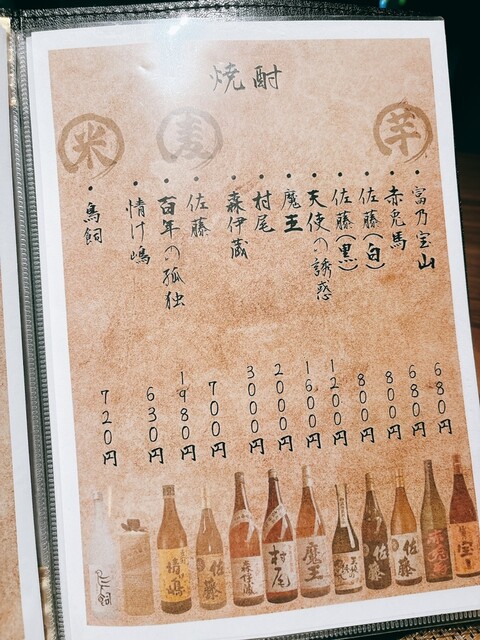 焼酎
芋
・富乃宝山 680円
・赤兎馬 680円
・佐藤(白) 800円
・佐藤(黒) 800円
・天使の誘惑 1200円
・魔王 1600円
・村尾 2000円
・森伊蔵 3000円
麦
・佐藤 700円
・百年の孤独 1980円
・情け嶋 630円
米
・鳥飼 720円
情嶋
佐藤
森伊蔵
村尾
魔王
佐藤
佐藤
赤兎馬
宝山